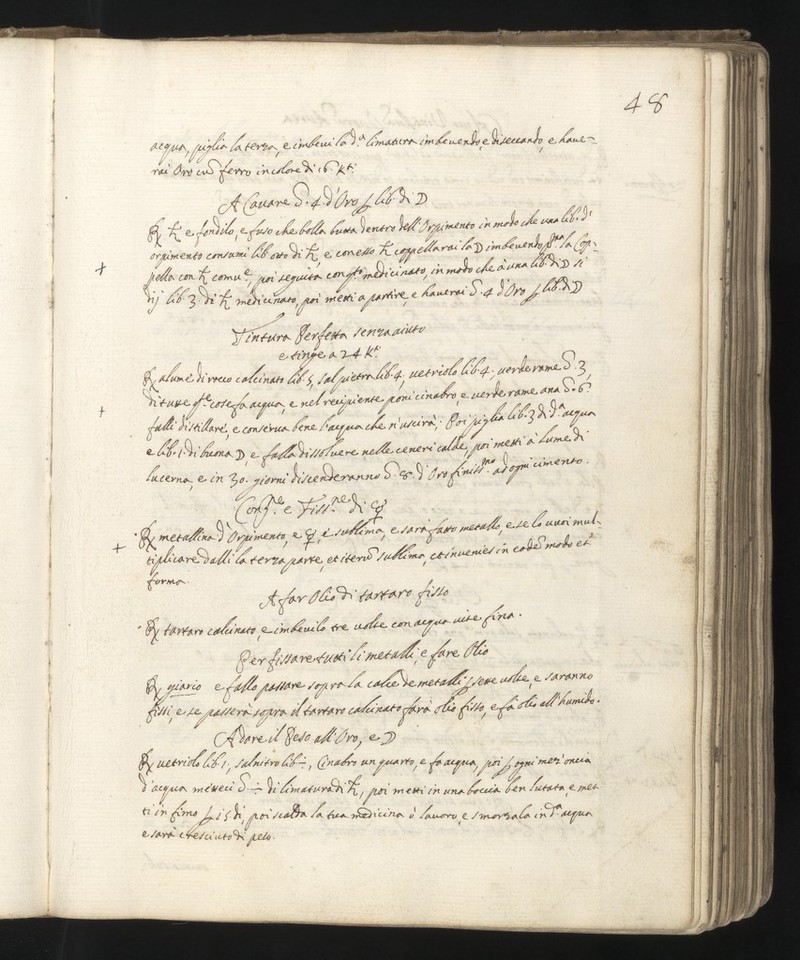 48
acqua, piglia la terza, e imbevi la d.ª limatura imbevendo, e diseccando, e haue-
rai Oro cũ ferro in colore di 16 K.ti
A Cavare ℥. 4. d'Oro ꝑ lib. di ☽
℞ ♄ e fondilo, e fuso che bolla butta dentro dell'Orpimento in modo che una lib. d'
orpimento consumi lib. otto di ♄, e con esso ♄ coppellarai la ☽ imbevendo pr.ª la Cop-
pella con ♄ comu.e, poi seguita con q.to medicinato, in modo che à una lib. di ☽ si
dij lib. 3. di ♄ medicinato, poi metti a partire, e haverai ℥. 4 d'Oro ꝑ lib. di ☽
Tintura Perfetta senza aiuto
e tinge a 24 K.ti
℞ alume di rocco calcinato lib. 5, sal pietra lib. 4, vetriolo lib. 4. verderame ℥. 3,
di tutte q.te cose fa acqua, e nel recipiente poni cinabro, e verderame ana ℥. 6.
falli distillare, e conserva bene l'acqua che n'uscirà; Poi piglia lib. 3 di d.ª acqua
e lib. 1. di buona ☽, e falla dissolvere nelle ceneri calde, poi metti à lume di
lucerna, e in 30. giorni discenderanno ℥. 8. d'Oro finiss.mo ad ogni cimento.
Cong.ne e Fiss.ne di ☿
℞ metallina d'Orpimento, e ☿, e sublima, e sarà fatto metallo, e se lo vuoi mul-
tiplicare dalli la terza parte, et iterũ sublima, et invenies in eodẽ modo et
forma
A far Olio di tartaro fisso
℞ tartaro calcinato, e imbevilo tre volte con acqua vite fina.
Per fissare tutti li metalli, e fare Olio
℞ giario e fallo passare sopra la calce de metalli ꝑ sette volte, e saranno
fissi, e se passerà sopra il tartaro calcinato farà olio fisso, e fà olio all'humido.
A dare il Peso all'Oro, e ☽
℞ vetriolo lib. 1, salnitro lib. ÷, Cinabro un quarto, e fa acqua, poi ꝑ ogni mez'oncia
d'acqua metteci ℥ ÷ di limatura di ♄, poi metti in una boccia ben lutata, e met
ti in fimo ꝑ 15 dì, poi scalda la tua medicina ò lavoro, e smorzala in d.ª acqua
e sarà cresciuto di peso.